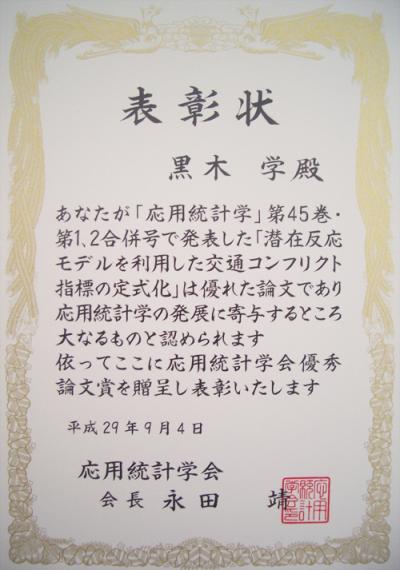 表彰状
黒木 学殿
あなたが「応用統計学」第45巻・
第1、2合併号で発表した「潜在反応
モデルを利用した交通コンフリクト
指標の定式化」は優れた論文であり
応用統計学の発展に寄与するところ
大なるものと認められます
依ってここに応用統計学会優秀
論文賞を贈呈し表彰いたします
平成29年9月4日
応用統計学会
会長 永田 靖